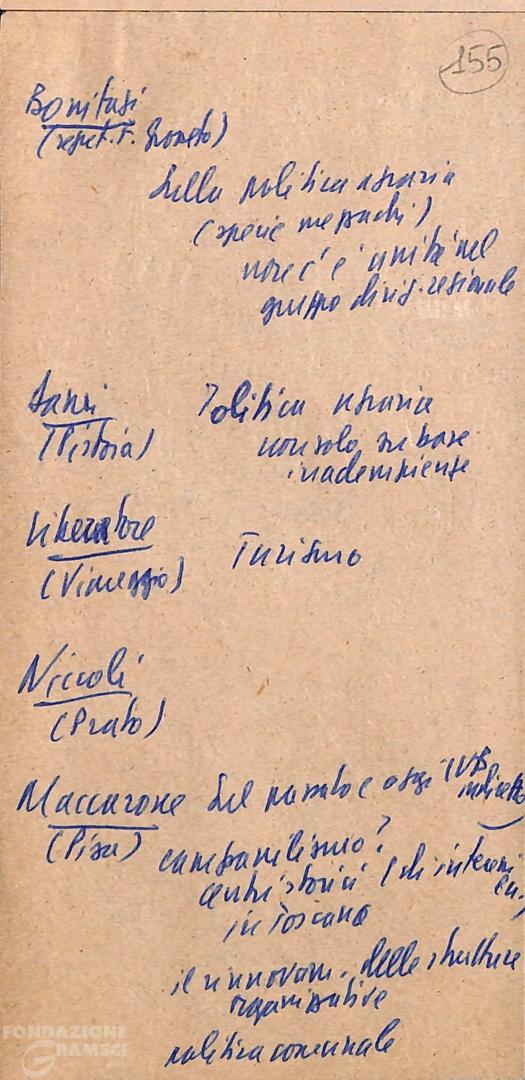 155
Bonifasi
(segret. F. Grosseto)
Sulla politica agraria
(specie mezzadri)
non c'è unità nel
gruppo dirig. regionale
Politica agraria
(Pistoia)
non solo su base
inadempienze
Liberatore
(Viareggio)
Turismo
Niccoli
(Prato)
Maccarone
(Pisa)
Sul passato e oggi
campanilismo?
centri storici
in Toscana
il rinnovam. delle strutture
organizzative
politica comunale
FONDAZIONE
GRAMSCI